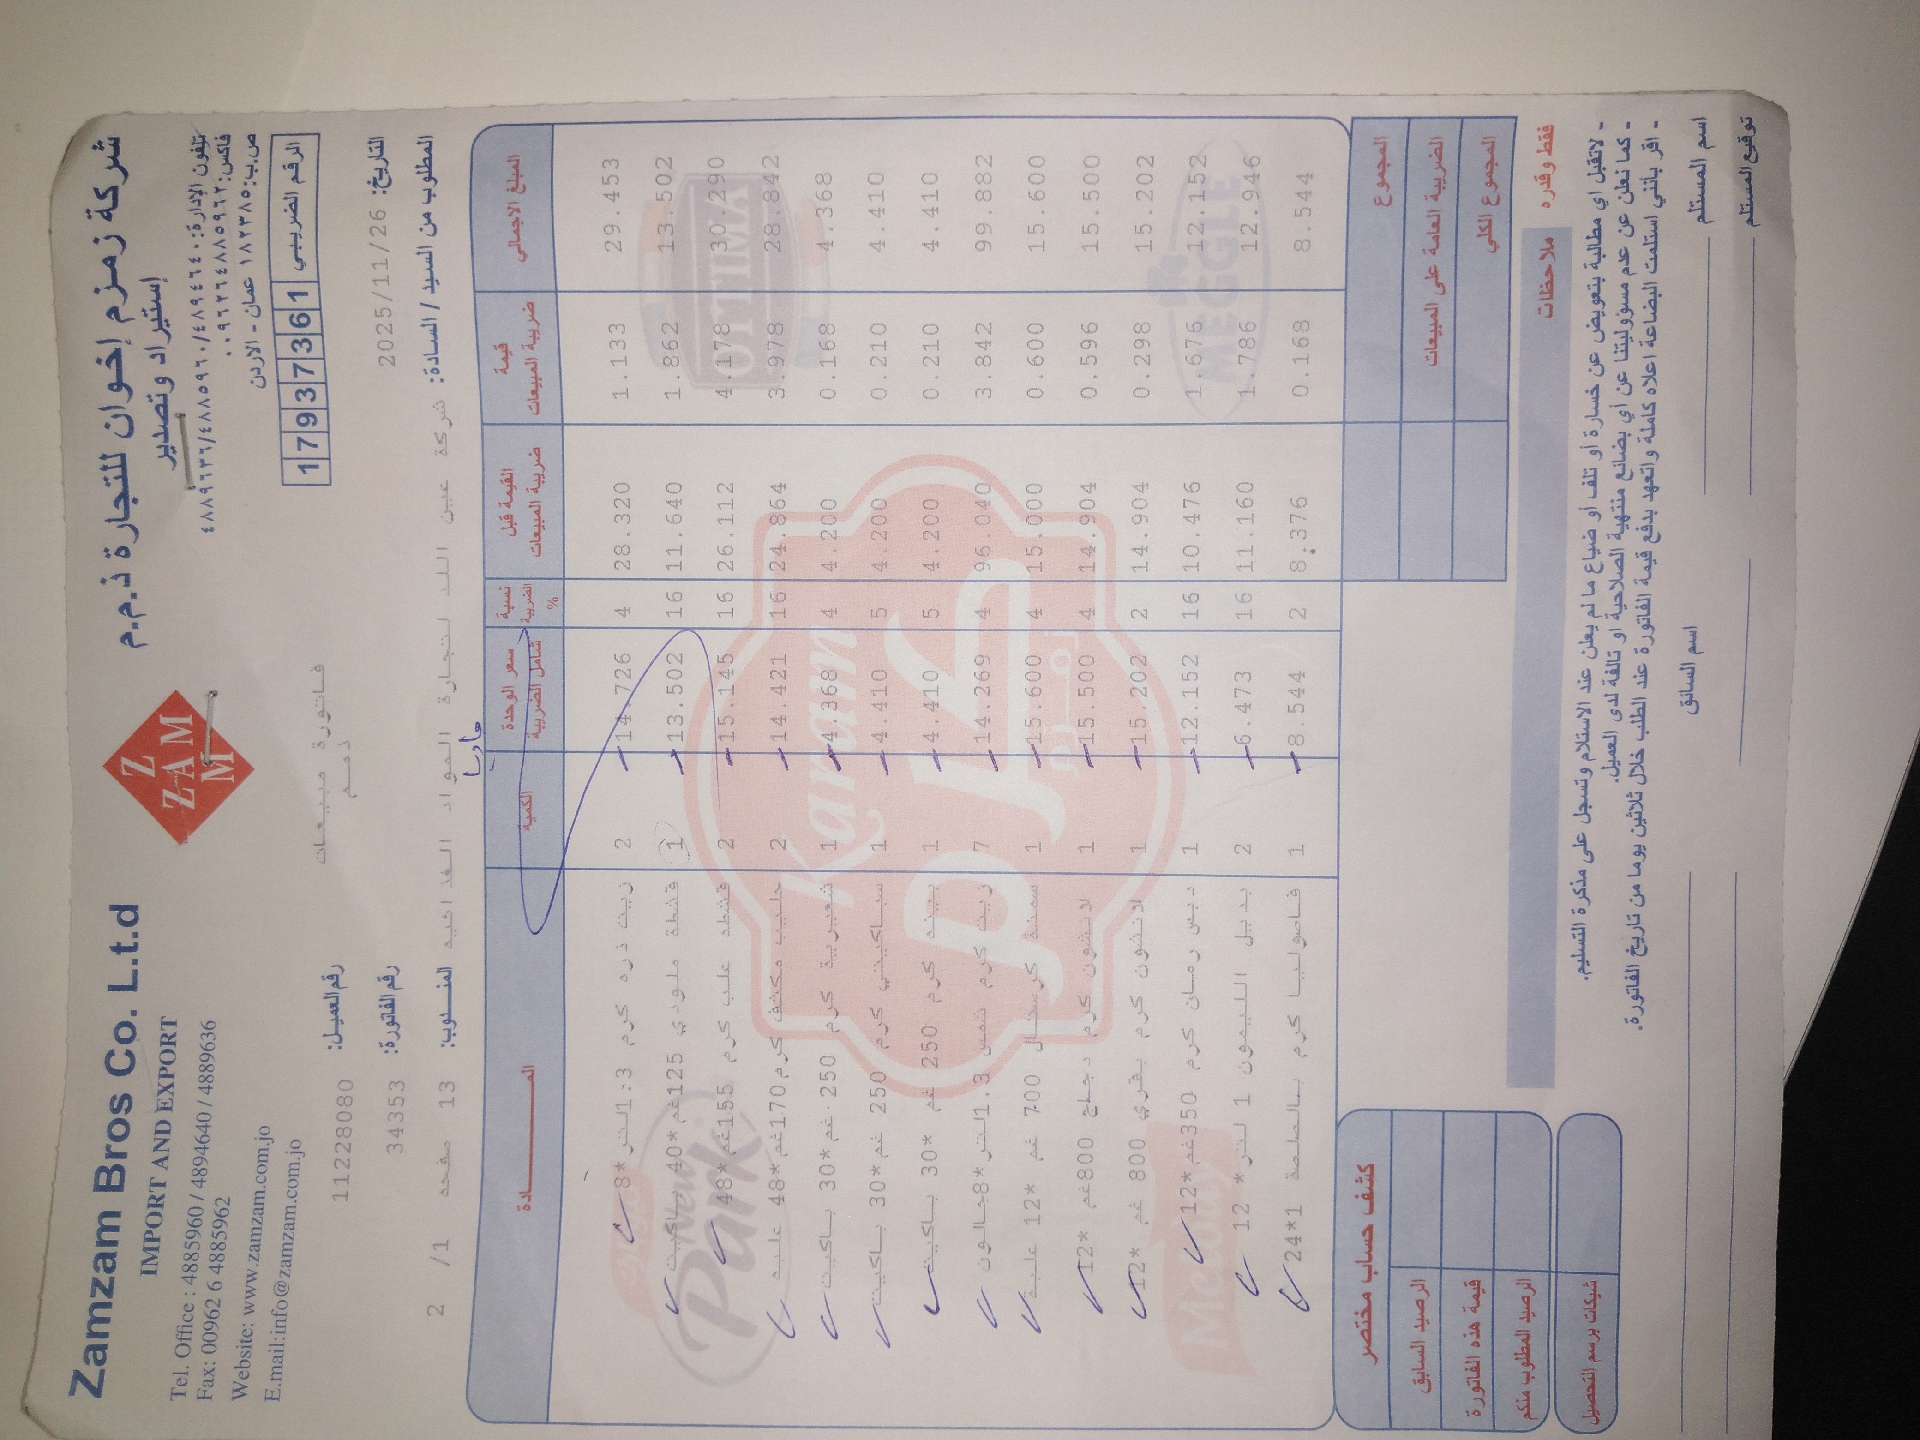 Zamzam Bros Co. L.t.d
IMPORT AND EXPORT
Tel. Office : 4885960 / 4894640 / 4889636
Fax: 00962 6 4885962
Website: www.zamzam.com.jo
E.mail:info@zamzam.com.jo
Z
ZAM
M
شركة زمزم إخوان للتجارة ذ.م.م
إستيراد وتصدير
تلفون الإدارة: ٤٨٨٩٦٣٦/٤٨٨٥٩٦٠/٤٨٩٤٦٤٠
فاكس: ٠٠٩٦٢٦٤٨٨٥٩٦٢
ص.ب: ١٨٢٣٨٥ عمان - الاردن
الرقم الضريبي 17937361
فاتورة مبيعات
ذمم
رقم العميل: 11228080
التاريخ: 2025/11/26
رقم الفاتورة: 34353
المطلوب من السيد / السادة: شركة عين اللد لتجارة المواد الغذائيه
المندوب: 13 صفحه 1/ 2
المادة الكمية سعر الوحدة شامل الضريبة نسبة الضريبة % القيمة قبل ضريبة المبيعات قيمة ضريبة المبيعات المبلغ الاجمالي
زيت ذره كرم 1.3لتر*8 2 14.726 4 28.320 1.133 29.453
قشطة ملودي 125غم *40 باكيت 1 13.502 16 11.640 1.862 13.502
قشطه علب كرم 155غم*48 2 15.145 16 26.112 4.178 30.290
حليب مكثف كرم170غم*48 علبه 2 14.421 16 24.864 3.978 28.842
شعيرية كرم 250 غم*30 باكيت 1 4.368 4 4.200 0.168 4.368
سباكيتي كرم 250 غم*30 باكيت 1 4.410 5 4.200 0.210 4.410
بينه كرم 250 غم *30 باكيت 1 4.410 5 4.200 0.210 4.410
زيت كرم شمس 1.3لتر*8جالون 7 14.269 4 96.040 3.842 99.882
سمنة كرستال 700 غم *12 علبة 1 15.600 4 15.000 0.600 15.600
لانشون كرم دجاج 800غم *12 1 15.500 4 14.904 0.596 15.500
لانشون كرم بقري 800 غم *12 1 15.202 2 14.904 0.298 15.202
دبس رمان كرم 350غم*12 1 12.152 16 10.476 1.676 12.152
بديل الليمون 1 لتر* 12 2 6.473 16 11.160 1.786 12.946
فاصوليا كرم بالصلصة 1*24 1 8.544 2 8.376 0.168 8.544
Karam
كرم
New Park
OPTIMA
MEGGLE
Meloday
المجموع
الضريبة العامة على المبيعات
المجموع الكلي
كشف حساب مختصر
الرصيد السابق
قيمة هذه الفاتورة
الرصيد المطلوب منكم
شيكات برسم التحصيل
فقط وقدره
ملاحظات
- لاتقبل اي مطالبة بتعويض عن خسارة أو تلف أو ضياع ما لم يعلن عند الاستلام وتسجل على مذكرة التسليم.
- كما نعلن عن عدم مسؤوليتنا عن أي بضائع منتهية الصلاحية او تالفة لدى العميل.
- اقر بأنني استلمت البضاعة اعلاه كاملة واتعهد بدفع قيمة الفاتورة عند الطلب خلال ثلاثين يوما من تاريخ الفاتورة.
اسم المستلم
اسم السائق
توقيع المستلم